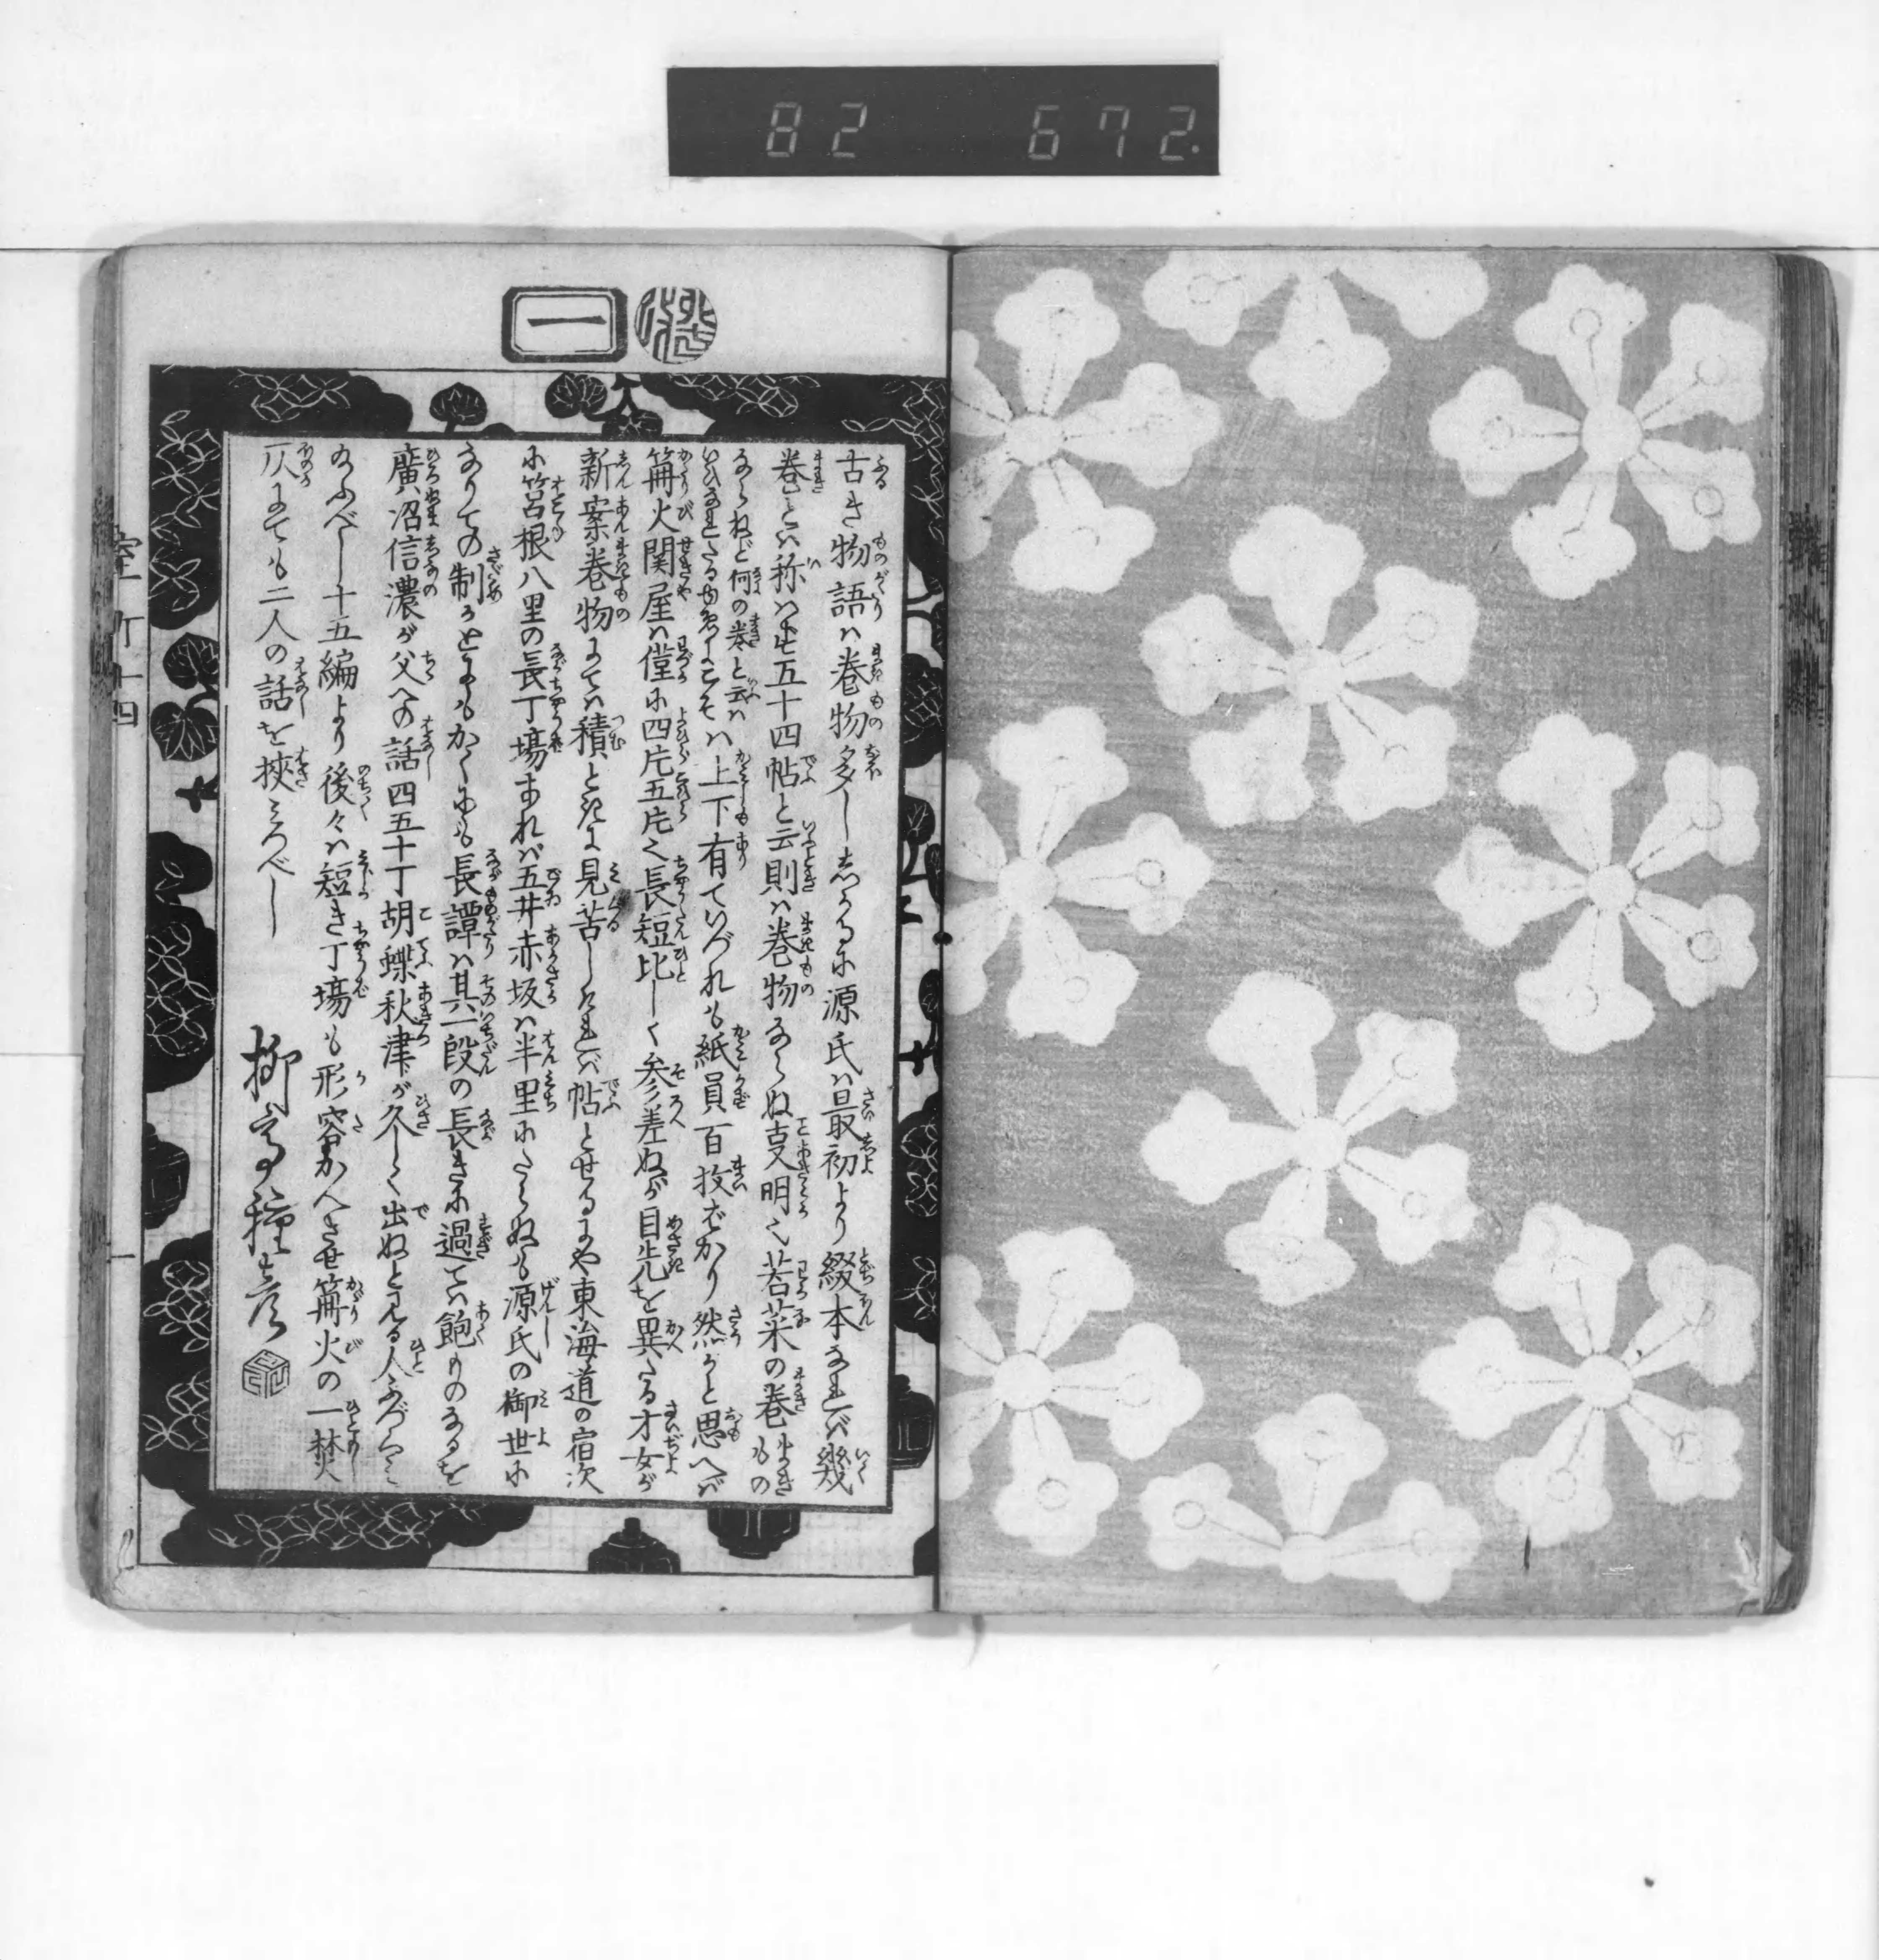 82 672.
一
古き物語ハ巻物多ししかるに源氏ハ最初より綴本なれバ幾
巻とハ称ハず五十四帖と云則ハ巻物ならぬ支明し若菜の巻もの
ならねど何の巻と云ハ
いひなれたるゆゑにこそハ上下有ていづれも紙員百枚ばかり然かと思へば
篝火関屋ハ僅に四片五片之長短比しく参差ぬが目先を異たる才女が
新案巻物にてハ積ときに見苦しけれバ帖とせるにや東海道の宿次
に筥根八里の長丁場あれバ五井赤坂ハ半里にたらぬも源氏の御世に
なりての制かともかくにも長譚ハ其一段の長きに過てハ飽ものなるを
廣沼信濃が父への話四五十丁胡蝶秋津が久しく出ぬと見る人
べし十五編より後々ハ短き丁場も形容かへさせ篝火の一焚
仄にても二人の話を挟みつべし
柳亭種彦
室町十四
一